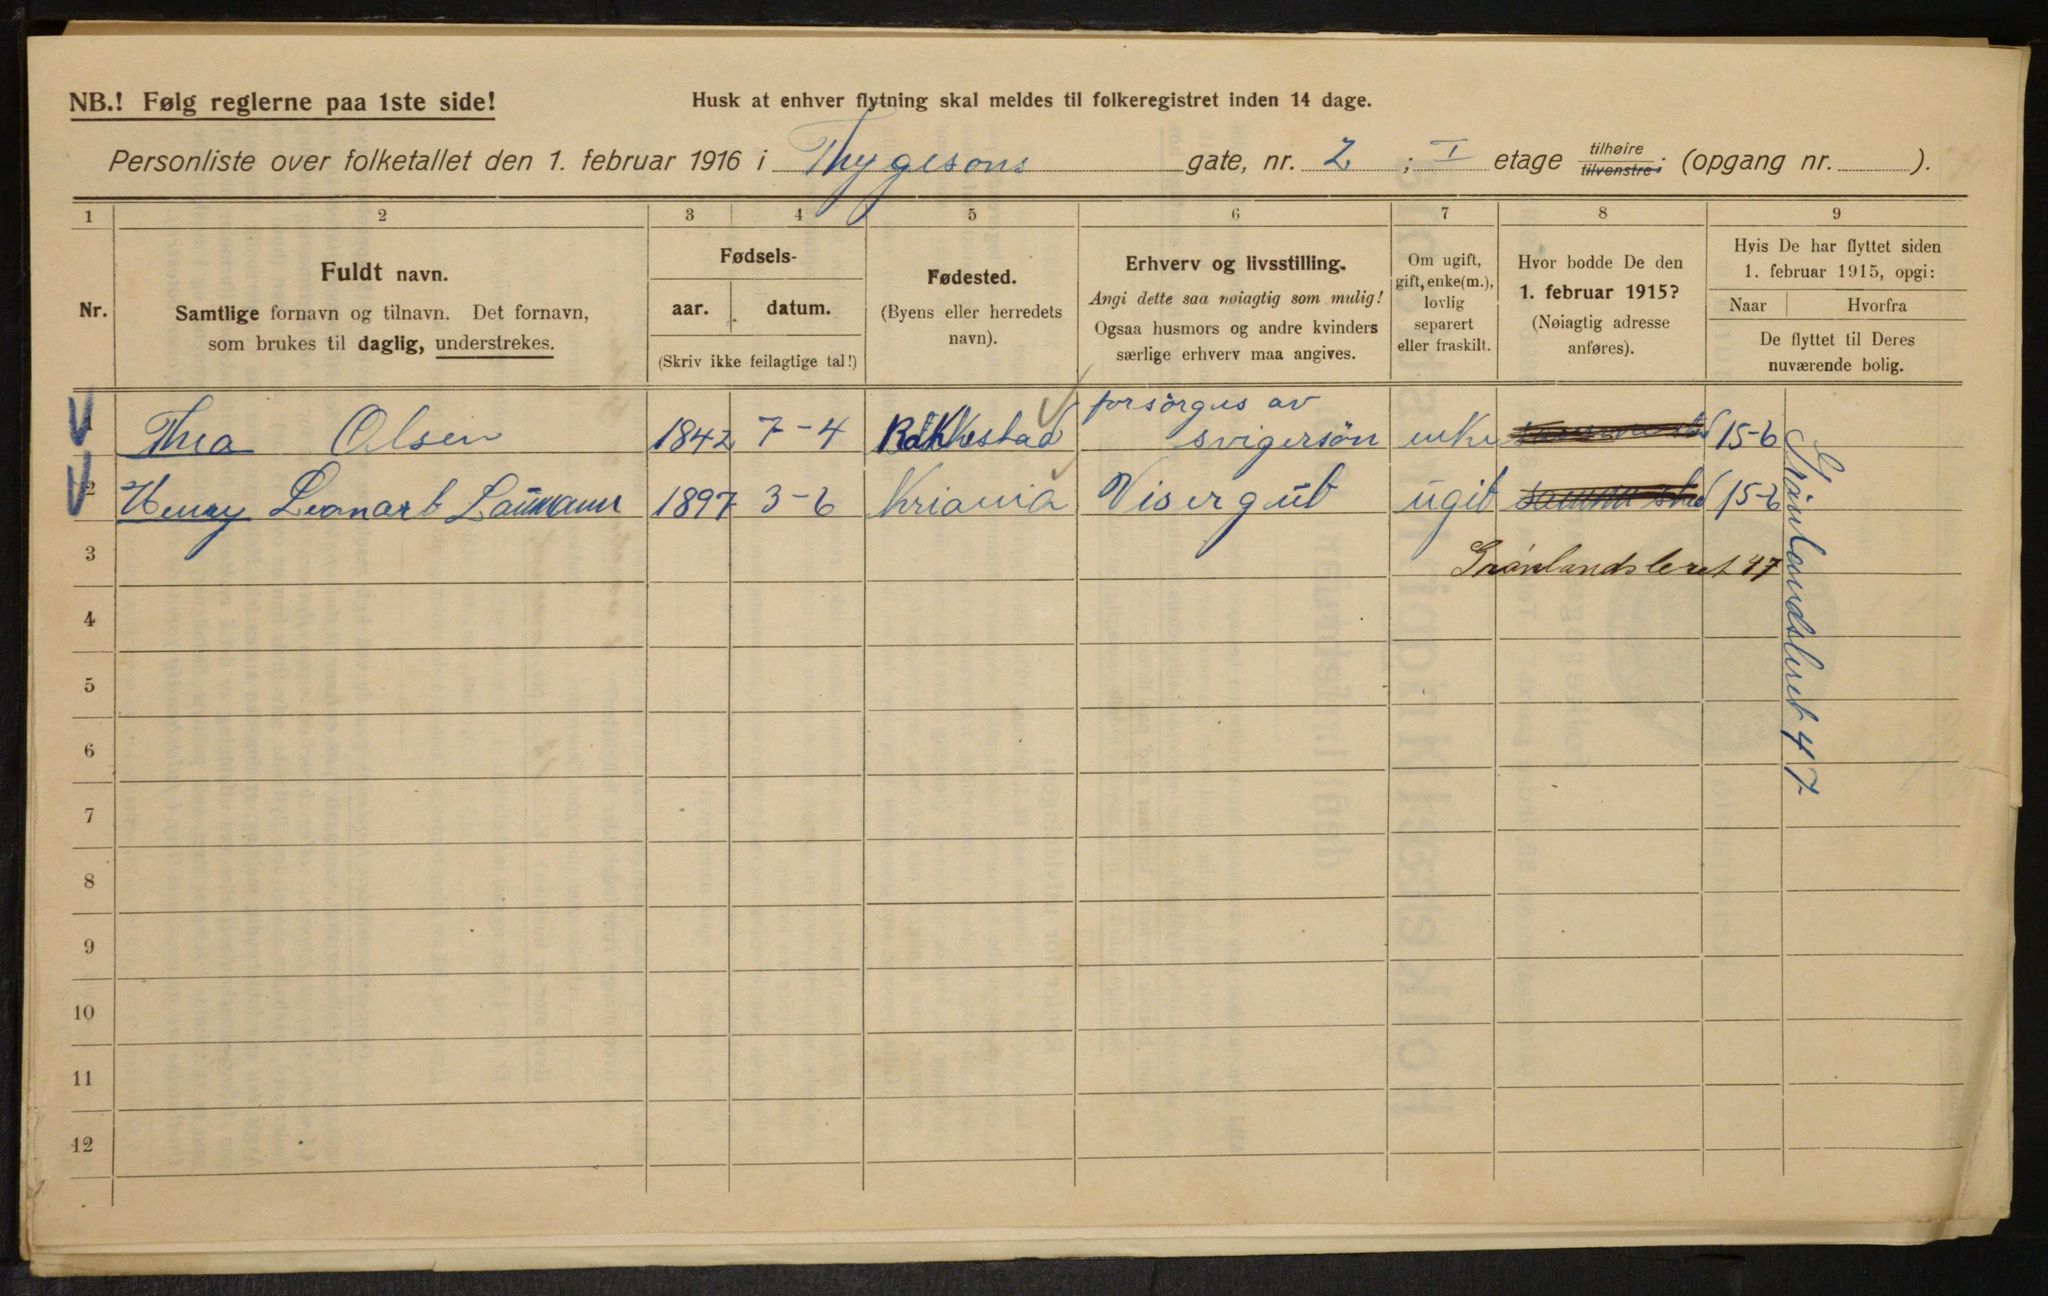 NB.! Følg reglerne paa 1ste side!
Husk at enhver flytning skal meldes til folkeregistret inden 14 dage.
Personliste over folketallet den 1. februar 1916 i Thygesons gate, nr. 2 ; I etage tilhøire tilvenstre; (opgang nr. ).
1 2 3 4 5 6 7 8 9
Nr.
Fuldt navn.
Samtlige fornavn og tilnavn. Det fornavn,
som brukes til daglig, understrekes.
Fødsels-
aar. datum.
(Skriv ikke feilagtige tal!)
Fødested.
(Byens eller herredets
navn).
Erhverv og livsstilling.
Angi dette saa nøiagtig som mulig!
Ogsaa husmors og andre kvinders
særlige erhverv maa angives.
Om ugift,
gift, enke(m.),
lovlig
separert
eller fraskilt.
Hvor bodde De den
1. februar 1915?
(Nøiagtig adresse
anføres).
Hvis De har flyttet siden
1. februar 1915, opgi:
Naar Hvorfra
De flyttet til Deres
nuværende bolig.
1 Thea Olsen 1842 7-4 Rakkestad forsørges av
svigersøn enke 15-6
2 Henry Leonart Laumann 1897 3-6 Kriania Visergut ugit samme sted 15-6
Grönlandsleret 47
3 Grønlandsleret 47
4
5
6
7
8
9
10
11
12